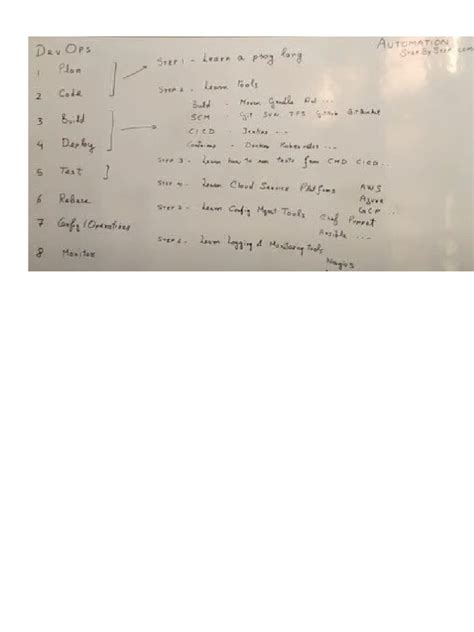 DevOps
1 Plan
2 Code
3 Build
4 Deploy
5 Test
6 Release
7 Config/Operations
8 Monitor
AUTOMATION
STEP BY STEP.COM
STEP 1 - Learn a prog lang
STEP 2 - Learn Tools
Build - Maven Gradle Ant ...
SCM - Git SVN TFS GitHub BitBucket
CICD - Jenkins ...
Containers - Docker Kubernetes ...
STEP 3 - Learn how to run tests from CMD CICD...
STEP 4 - Learn Cloud Service Platforms AWS
Azure
GCP ...
STEP 5 - Learn Config Mgmt Tools Chef Puppet
Ansible ...
STEP 6 - Learn Logging & Monitoring Tools
Nagios